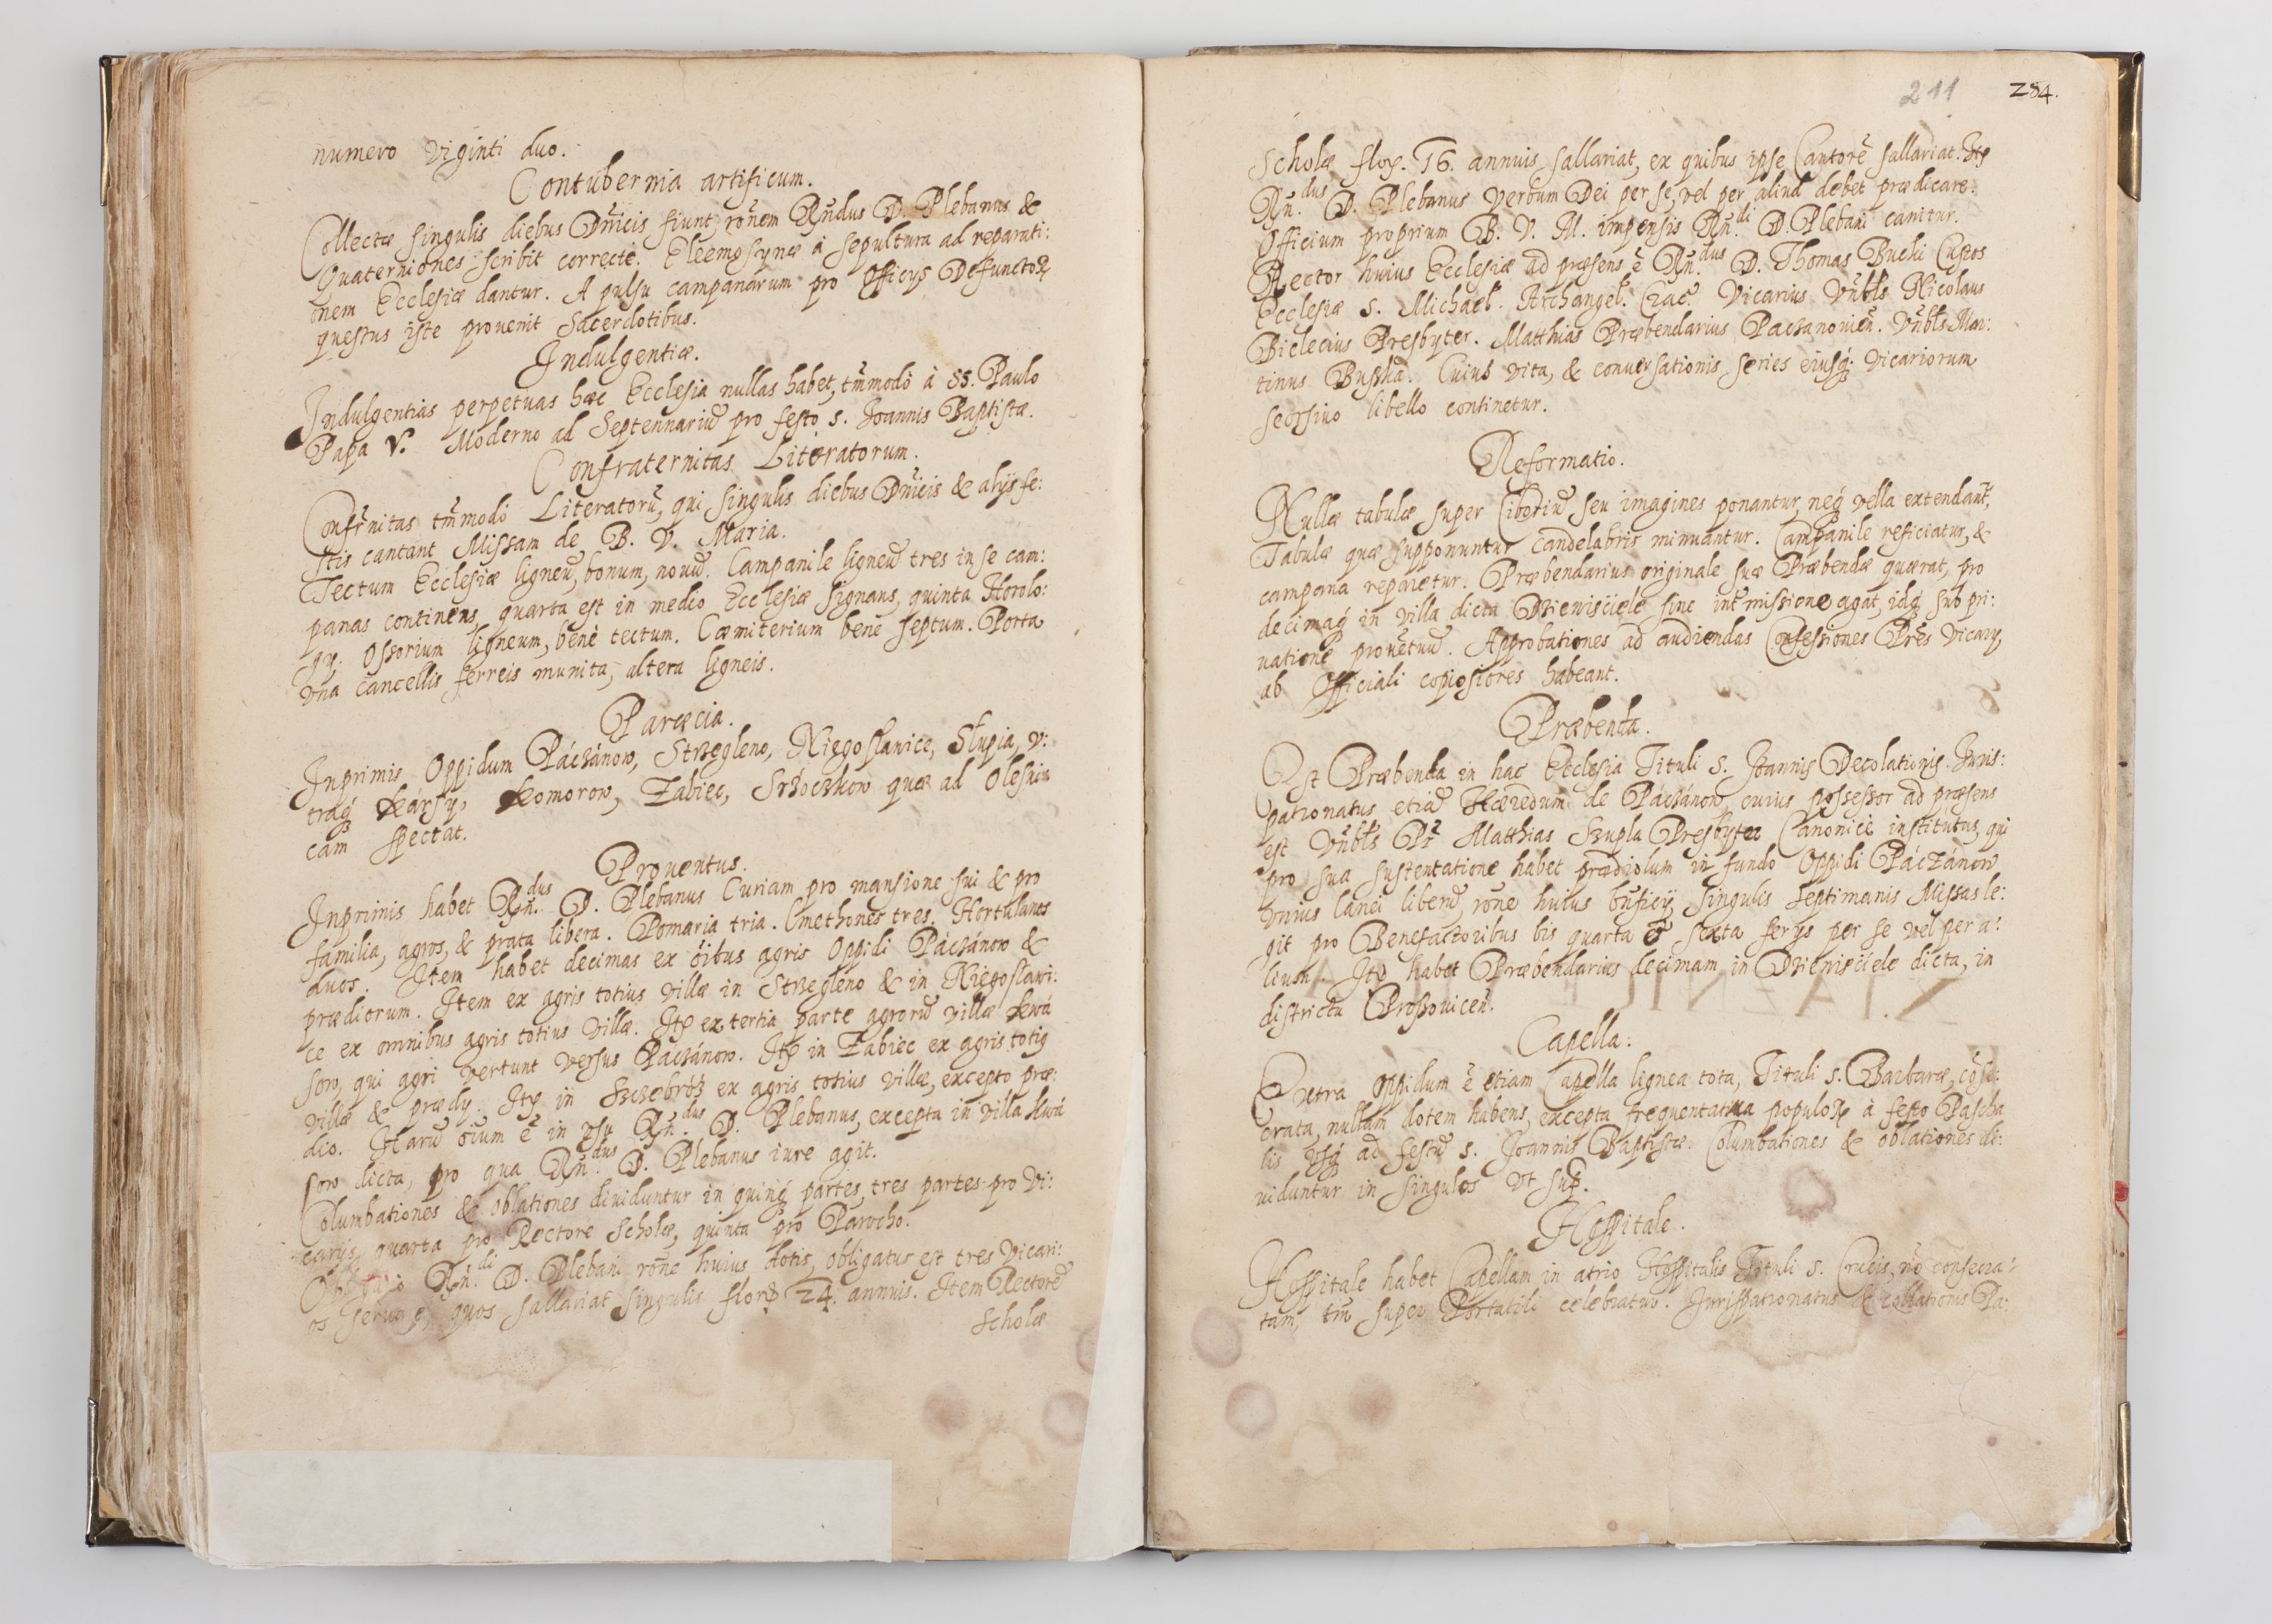 numero viginti duo.
Contubernia artificum.
Collectæ singulis diebus Dn̄icis fiunt, rōnem Rn̄dus D. Plebanus &
Quaterniones scribit correctè. Eleemosynæ à sepultura ad reparati:
onem Ecclesiæ dantur. A pulsu campanarum pro Officÿs Defunctoꝝ
questus iste prouenit Sacerdotibus.
Indulgentiæ.
Indulgentias perpetuas hæc Ecclesia nullas habet, tm̄modò à SS. Paulo
Papa V. Moderno ad Septennariū pro festo S. Joannis Baptistæ.
Confraternitas Literatorum.
Confr̄nitas tm̄modò Literatorū, qui singulis diebus Dn̄icis & alÿs fe:
stis cantant Missam de B. V. Maria.
Tectum Ecclesiæ ligneū, bonum, nouū. Campanile ligneū tres in se cam:
panas continens, quarta est in medio Ecclesiæ signans, quinta Horolo:
gÿ. Ossorium ligneum, benè tectum. Cœmiterium benè septum. Porta
vna cancellis ferreis munita, altera ligneis.
Parœcia.
Inprimis Oppidum Páczánow, Strzegleno, Niegoslanice, Słupia, v:
traq́ Kársy, Komorow, Zabiec, Srzoczkow quæ ad Olesnic
cam spectat.
Prouentus.
Inprimis habet Rn̄.dus D. Plebanus Curiam pro mansione sui & pro
familia, agros, & prata libera. Pomaria tria. Cmethones tres. Hortulanos
duos. Item habet decimas ex oībus agris Oppidi Páczánow &
prædiorum. Item ex agris totius villæ in Strzegleno & in Niegoslawi:
ce ex omnibus agris totius villæ. Itē ex tertia parte agrorū villæ Kwá
sow, qui agri vertunt versus Paczánow. Itē in Zabiec ex agris totiꝰ
villæ & prædÿ. Itē in Szczebrósz ex agris totius villæ, excepto præ:
dio. Harū oīum ē in vsu Rn̄.dus D. Plebanus, excepta in villa Kwá
sow dicta, pro qua Rn̄.dus D. Plebanus iure agit.
Columbationes & oblationes diuiduntur in quinq́ partes, tres partes pro Vi:
carÿs, quarta pro Rectore Scholæ, quinta pro Parocho.
Rn̄.di D. Plebani rōne huius dotis, obligatus est tres Vicari:
os quos sallariat singulis florꝫ 24. annuis. Item Rectorē
Scholæ
211 284.
Scholæ flor. 16. annuis sallariat, ex quibus ipse Cantorē sallariat. Itē
Rn̄.dus D. Plebanus verbum Dei per se, vel per aliud debet prædicare.
Officium proprium B. V. M. impensis Rn̄.di D. Plebani canitur.
Rector huius Ecclesiæ ad præsens ē Rn̄.dus D. Thomas Buchi Custos
Ecclesiæ S. Michael. Archangel. Crac. Vicarius Vn̄bls Nicolaus
Bielecius Presbyter. Matthias Præbendarius Paczanouien̄. Vn̄bls Mar:
tinus Buskā. Cuius vita, & conuersationis series eiusq́ vicariorum
seorsiuo libello continetur.
Reformatio.
Nullæ tabulæ super Ciboriū seu imagines ponantur, neq́ vella extendant̄,
Tabulæ quæ supponuntur candelabris minuantur. Campanile reficiatur, &
campana reparetur. Præbendarius originale suæ Præbendæ quærat, pro
decimaq́ in villa dicta Dzienisciele sine int̄missione agat, idq́ sub pri:
uatione prouētuū. Approbationes ad audiendas Confessiones Prēs Vicarÿ,
ab Officiali copiosiores habeant.
Præbenda.
Est Præbenda in hac Ecclesia Tituli S. Joannis Decolationis. Iuris:
patronatus etiā Hæredum de Páczánow, cuius possessor ad præsens
est Vn̄bls Pr̄ Matthias Szupla Presbyter Canonicè institutus, qui
pro sua sustentatione habet prædiolum in fundo Oppidi Páczánow
vnius lanei liberū, rōne huius bn̄ficÿ, singulis septimanis Missas le:
git pro Benefactoribus bis quarta & sexta ferÿs per se vel per a:
lium. Itē habet Præbendarius decimam in Dzienisciele dicta, in
districtu Proszouicen̄.
Capella.
Extra Oppidum ē etiam Capella lignea tota, Tituli S. Barbaræ, cōse:
crata, nullam dotem habens, excepta frequentatiua populoꝝ à festo Pascha
lis vsq́ ad festū S. Joannis Baptistæ. Columbationes & oblationes di:
uiduntur in singulos vt sup̄.
Hospitale.
Hospitale habet Capellam in atrio Hospitalis Tituli S. Crucis, nō consecra:
tam, tm̄ super Portatili celebratur. Jurispatronatus & collationis Pa: